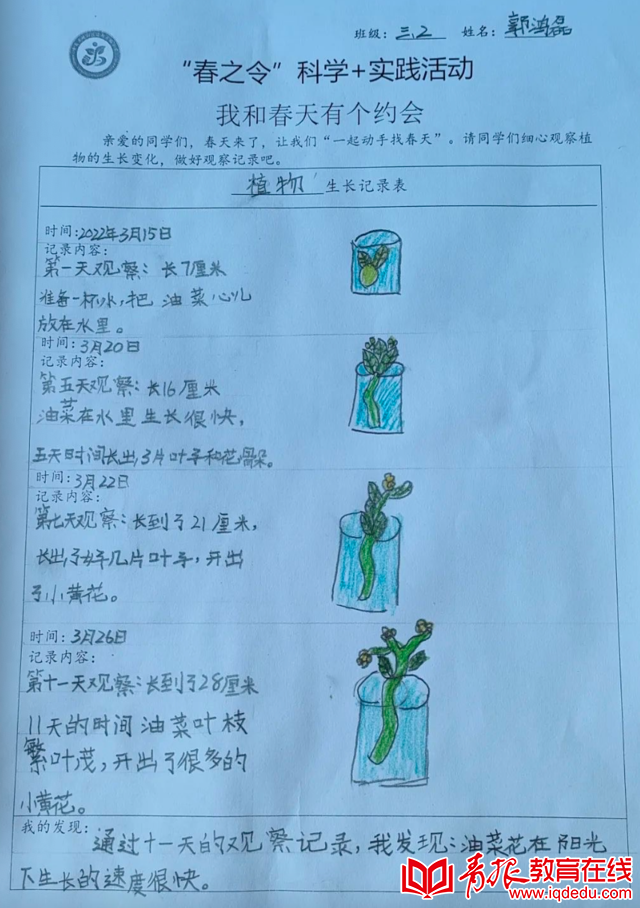 班级：三、2 姓名：郭鸿磊
“春之令”科学+实践活动
我和春天有个约会
亲爱的同学们，春天来了，让我们“一起动手找春天”。请同学们细心观察植
物的生长变化，做好观察记录吧。
植物 生长记录表
时间：2022年3月15日
记录内容：
第一天观察：长7厘米
准备一杯水，把油菜心儿
放在水里。
时间：3月20日
记录内容：
第五天观察：长16厘米
油菜在水里生长很快，
五天时间长出3片叶子和花骨朵。
时间：3月22日
记录内容：
第七天观察：长到了21厘米，
长出了好几片叶子，开出
了小黄花。
时间：3月26日
记录内容：
第十一天观察：长到了28厘米
11天的时间油菜叶枝
繁叶茂，开出了很多的
小黄花。
我的发现：
通过十一天的观察记录，我发现：油菜花在阳光
下生长的速度很快。
青报教育在线
www.iqdedu.com